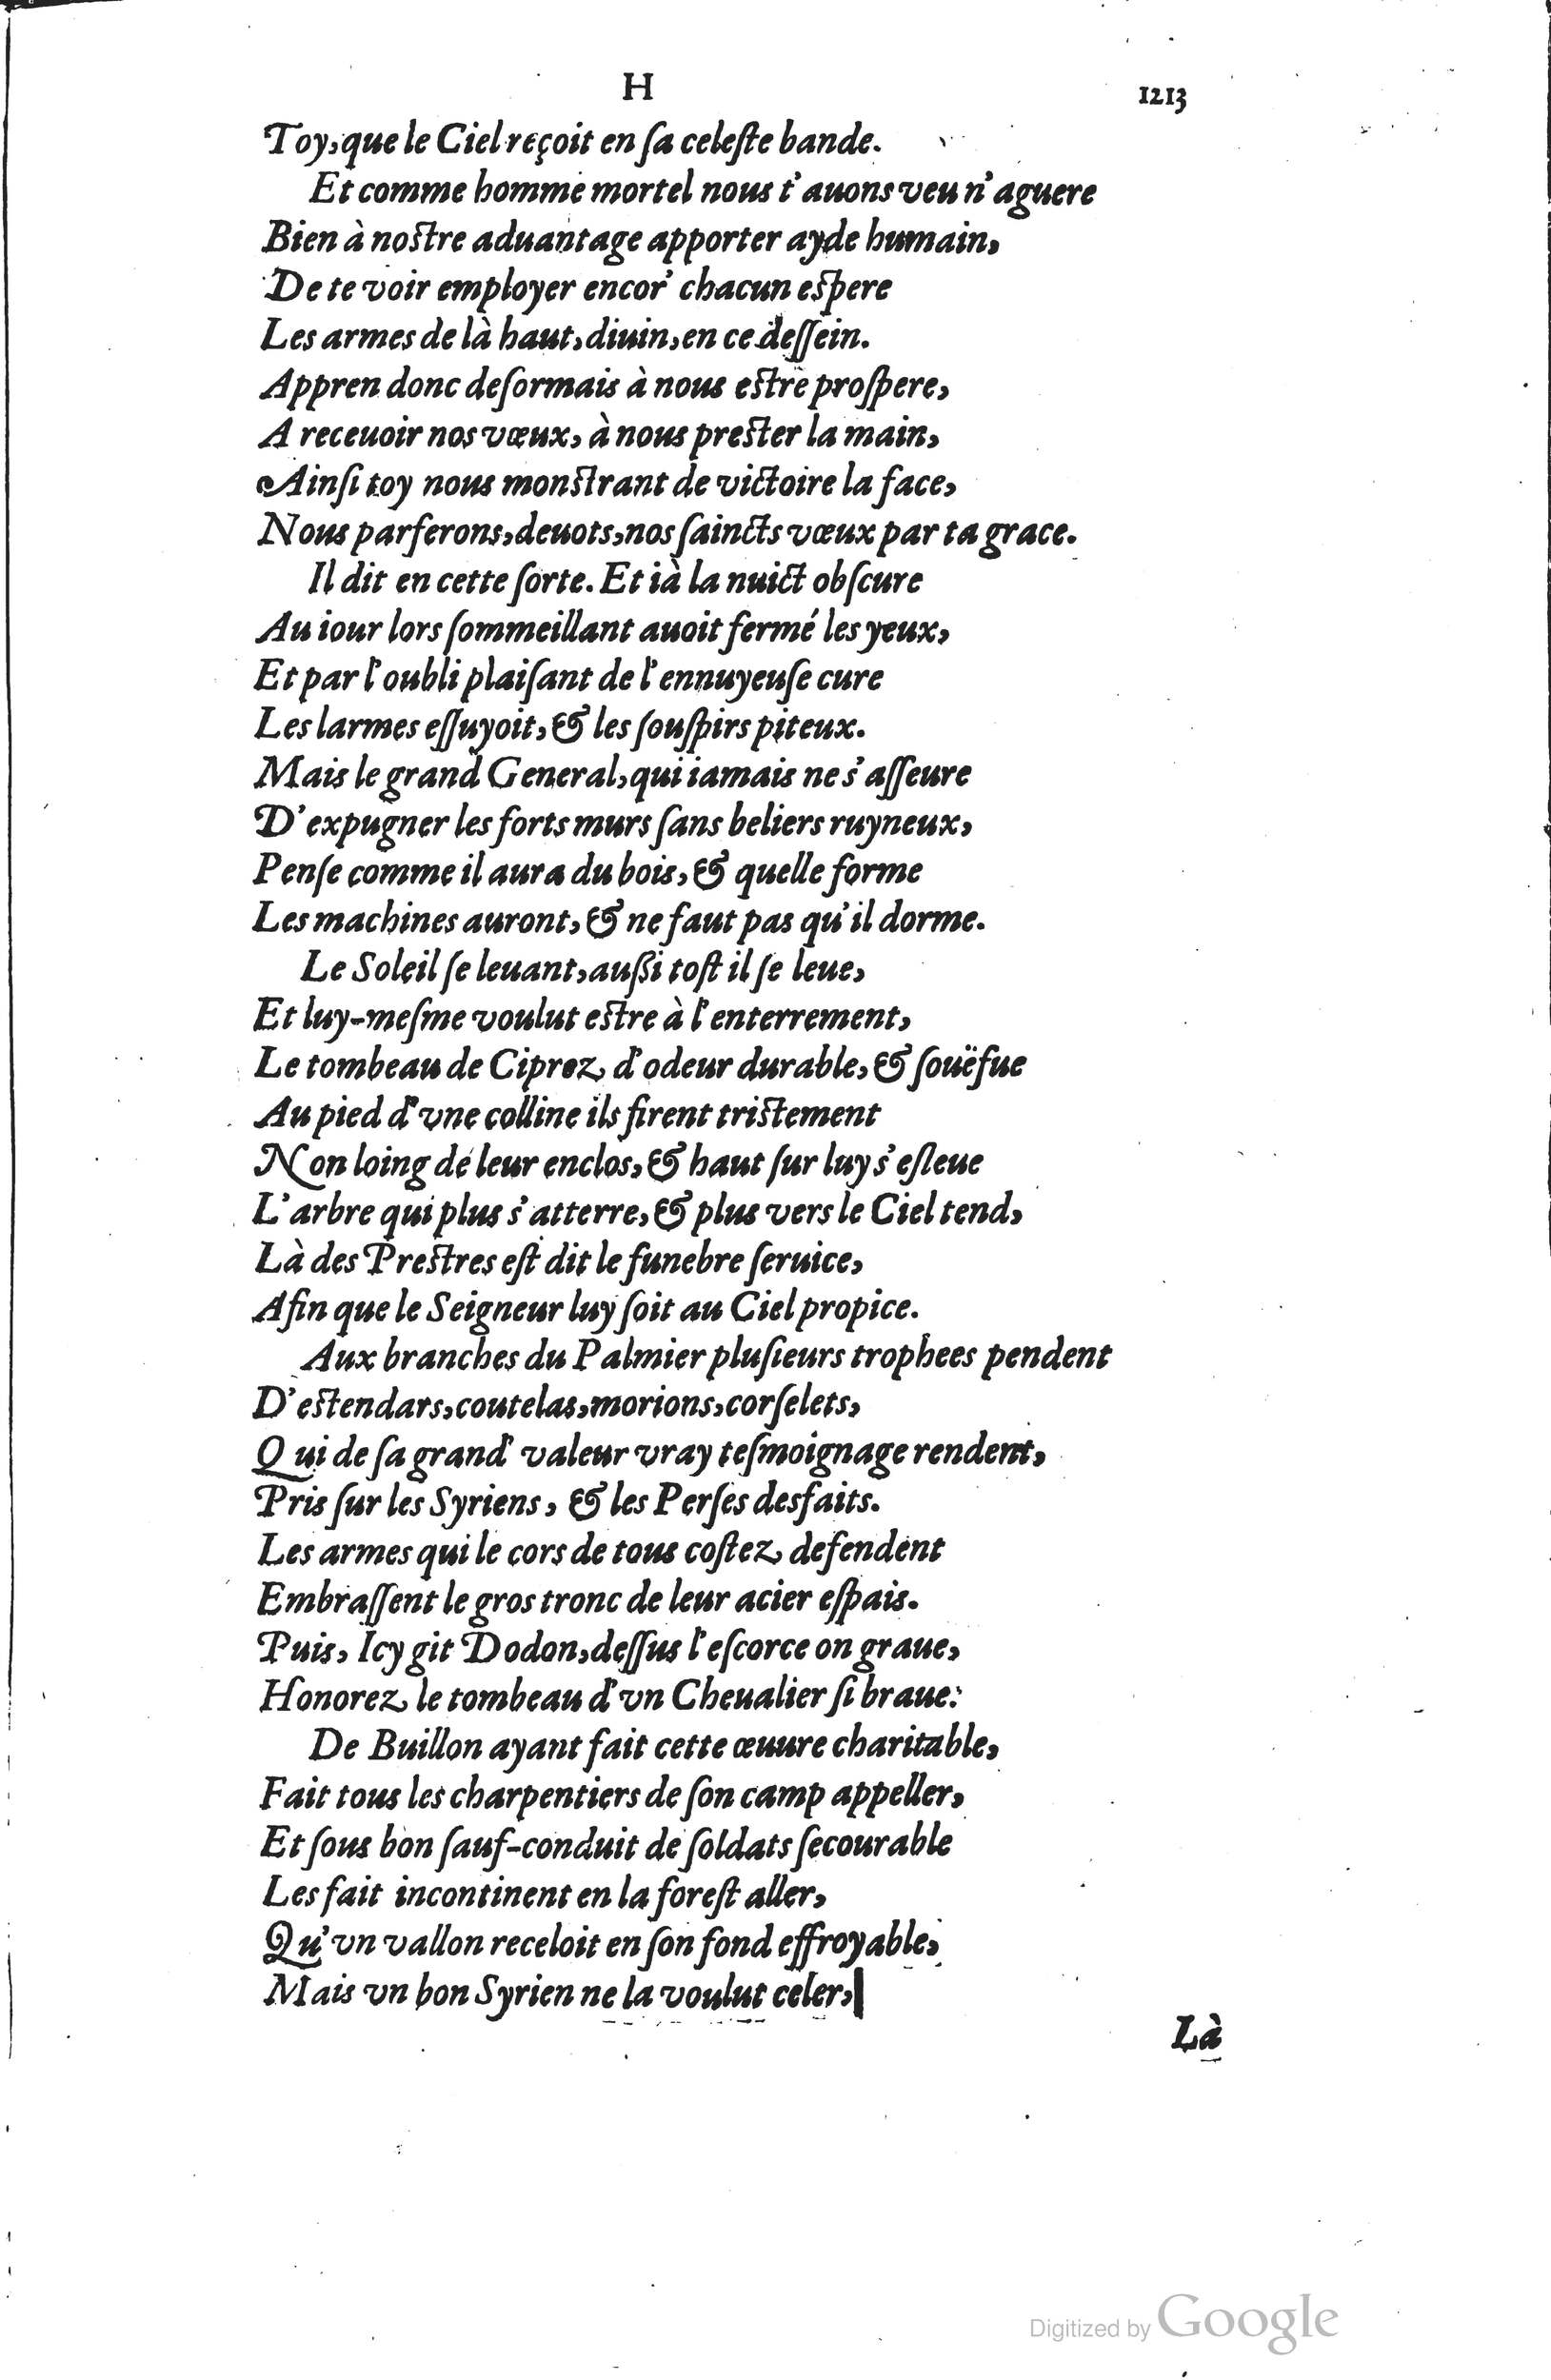 H 1213
Toy, que le Ciel reçoit en ſa celeſte bande.
Et comme homme mortel nous t'auons veu n'aguere
Bien à noſtre aduantage apporter ayde humain,
De te voir employer encor' chacun eſpere
Les armes de là haut, diuin, en ce deſſein.
Appren donc deſormais à nous eſtre proſpere,
A receuoir nos vœux, à nous preſter la main,
Ainſi toy nous monſtrant de victoire la face,
Nous parferons, deuots, nos ſaincts vœux par ta grace.
Il dit en cette ſorte. Et ià la nuict obſcure
Au iour lors ſommeillant auoit fermé les yeux,
Et par l'oubli plaiſant de l'ennuyeuſe cure
Les larmes eſſuyoit, & les ſouſpirs piteux.
Mais le grand General, qui iamais ne s'aſſeure
D'expugner les forts murs ſans beliers ruyneux,
Penſe comme il aura du bois, & quelle forme
Les machines auront, & ne faut pas qu'il dorme.
Le Soleil ſe leuant, auſſi toſt il ſe leue,
Et luy-meſme voulut eſtre à l'enterrement,
Le tombeau de Ciprez d'odeur durable, & ſouëfue
Au pied d'vne colline ils firent triſtement
Non loing de leur enclos, & haut ſur luy s'eſleue
L'arbre qui plus s'atterre, & plus vers le Ciel tend,
Là des Preſtres eſt dit le funebre ſeruice,
Afin que le Seigneur luy ſoit au Ciel propice.
Aux branches du Palmier pluſieurs trophees pendent
D'eſtendars, coutelas, morions, corſelets,
Qui de ſa grand' valeur vray teſmoignage rendent,
Pris ſur les Syriens, & les Perſes desfaits.
Les armes qui le cors de tous coſtez defendent
Embraſſent le gros tronc de leur acier eſpais.
Puis, Icy git Dodon, deſſus l'eſcorce on graue,
Honorez le tombeau d'vn Cheualier ſi braue.
De Buillon ayant fait cette œuure charitable,
Fait tous les charpentiers de ſon camp appeller,
Et ſous bon ſauf-conduit de ſoldats ſecourable
Les fait incontinent en la foreſt aller,
Qu'vn vallon receloit en ſon fond effroyable,
Mais vn bon Syrien ne la voulut celer,
Là
Digitized by Google